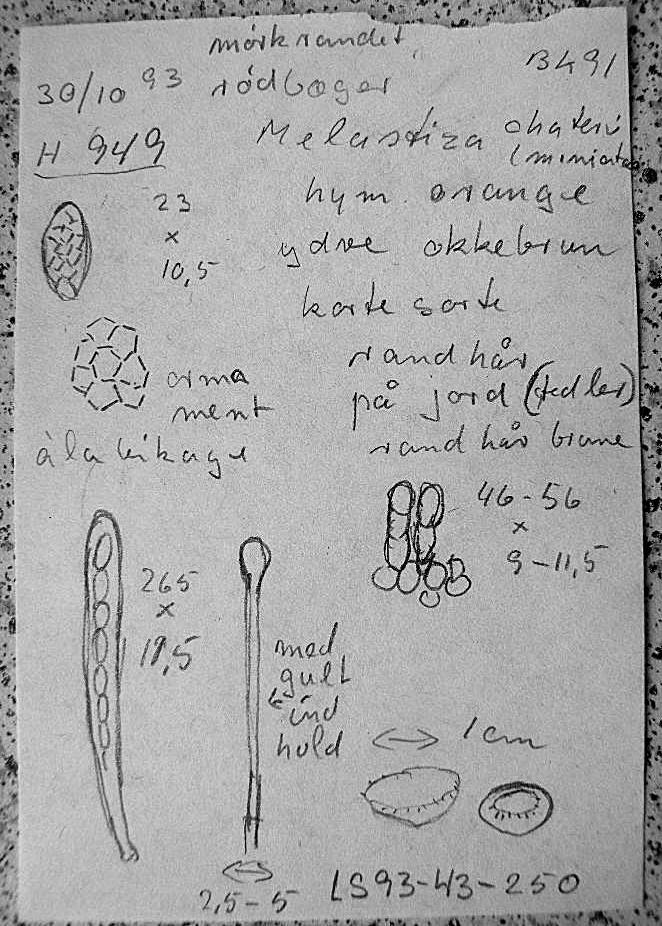 mörkrandet
30/10 93 rödbæger B491
H 949 Melastiza chateri
(miniata
23
x
10,5
hym. orange
ydre okkebrun
korte sorte
randhår
på jord (fedler)
randhår brune
orna
ment
à la
46-56
x
9-11,5
265
x
med
gult
ind
hold
1cm
2,5-5
LS93-43-250